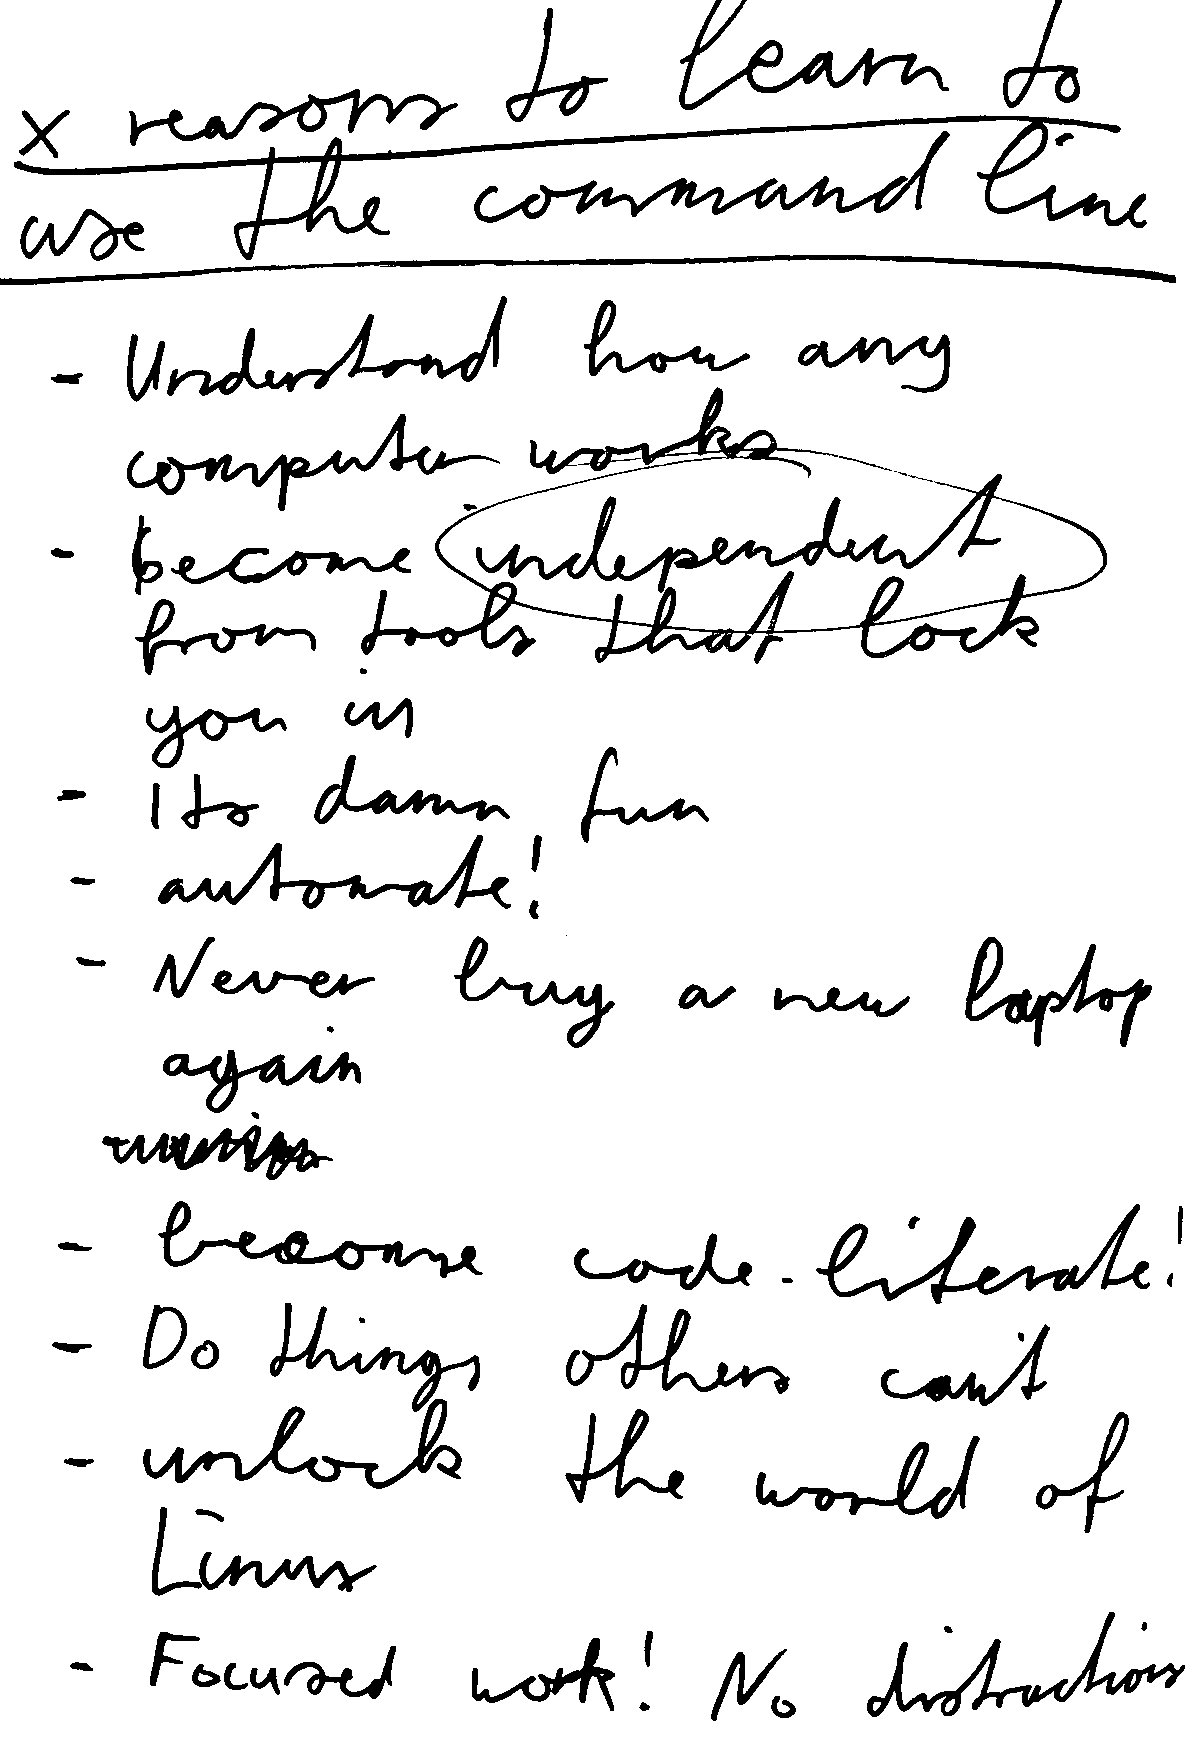 x reasons to learn to
use the command line
- Understand how any
computer works
- become independent
from tools that lock
you in
- Its damn fun
- automate!
- Never buy a new laptop
again
- become code-literate!
- Do things others can't
- unlock the world of
Linux
- Focused work! No distractions